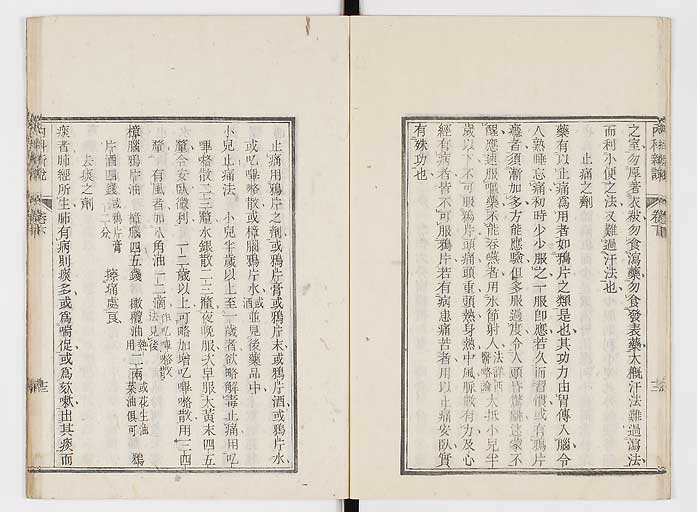 之室勿厚著衣被勿食瀉藥勿食發表藥大概汗法難過瀉法
而利小便之法又難過汗法也
止痛之劑
藥有以止痛為用者如鴉片之類是也其功力由胃傳入腦令
人熟睡忘痛初時少少服之一服即應若久而習慣或有鴉片
癮者須漸加多方能應驗但多服過度令人頭昏
醒應速服嘔藥不能吞嚥者用水節射入法詳西醫略論大抵小兒半
歲以下不可服鴉片頭痛頭重頭熱身熱中風脈數有力及心
經有病者皆不可服鴉片若有病患痛苦者用以止痛安臥實
有殊功也
內科新說 卷下
止痛用鴉片之劑或鴉片膏或鴉片末或鴉片酒或鴉片水
或叱嗶咯散或樟腦鴉片水酒並見後藥品中
小兒止痛法 小兒半歲以上至一歲者欲略解毒止痛用叱
嗶咯散二三釐水銀散二三釐夜晚服次早服大黃末四五
釐令安臥微利 一二歲以上可略加增叱嗶咯散用三四
釐 有風者加八角油一二滴法見後
樟腦鴉片油 樟腦四五錢 橄欖油熱用二兩或花生油菜油俱可 鴉
片酒四錢或鴉片膏二分 擦痛處良
去痰之劑
痰者肺經所生肺有病則痰多或為喘促或為欬嗽出其痰而
內科新說 卷下